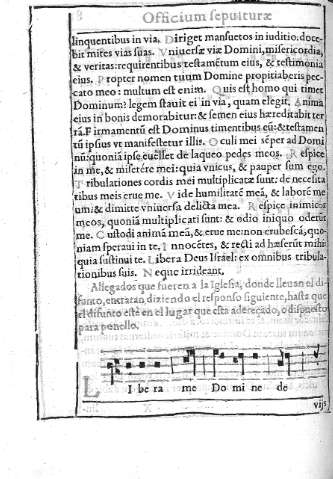 Officium sepulturæ
linquentibus in via. Diriget mansuetos in iuditio: doce-
bit mites vias suas. Vniuersæ viæ Domini, misericordia,
& veritas: requirentibus testamẽtum eius, & testimonia
eius. Propter nomen tuum Domine propitiaberis pec-
cato meo: multum est enim. Quis est homo qui timet
Dominum? legem statuit ei in via, quam elegit. Anima
eius in bonis demorabitur: & semen eius hæreditabit ter
rã. Firmamentũ est Dominus timentibus eũ: & testamen
tũ ipsius vt manifestetur illis. Oculi mei sẽper ad Domi
nũ: quoniã ipse euellet de laqueo pedes meos. Respice
in me, & miserére mei: quia vnicus, & pauper sum ego.
Tribulationes cordis mei multiplicatæ sunt: de necessita
tibus meis erue me. Vide humilitatẽ meã, & laborẽ me
um: & dimitte vniuersa delicta mea. Respice inimicos
meos, quoniã multiplicati sunt: & odio iniquo oderũt
me. Custodi animã meã, & erue me: non erubescã, quo-
niam speraui in te. Innocẽtes, & recti ad hæserũt mihi:
quia sustinui te. Libera Deus Israel: ex omnibus tribula-
tionibus suis. Neque irrideant.
Allegados que fueren a la Iglesia, donde lleuan el di-
funto, entraran diziendo el responso siguiente, hasta que
el difunto esté en el lugar que esta adereçado, o dispuesto
para ponello.
L
I be ra me Do mi ne de
vijs